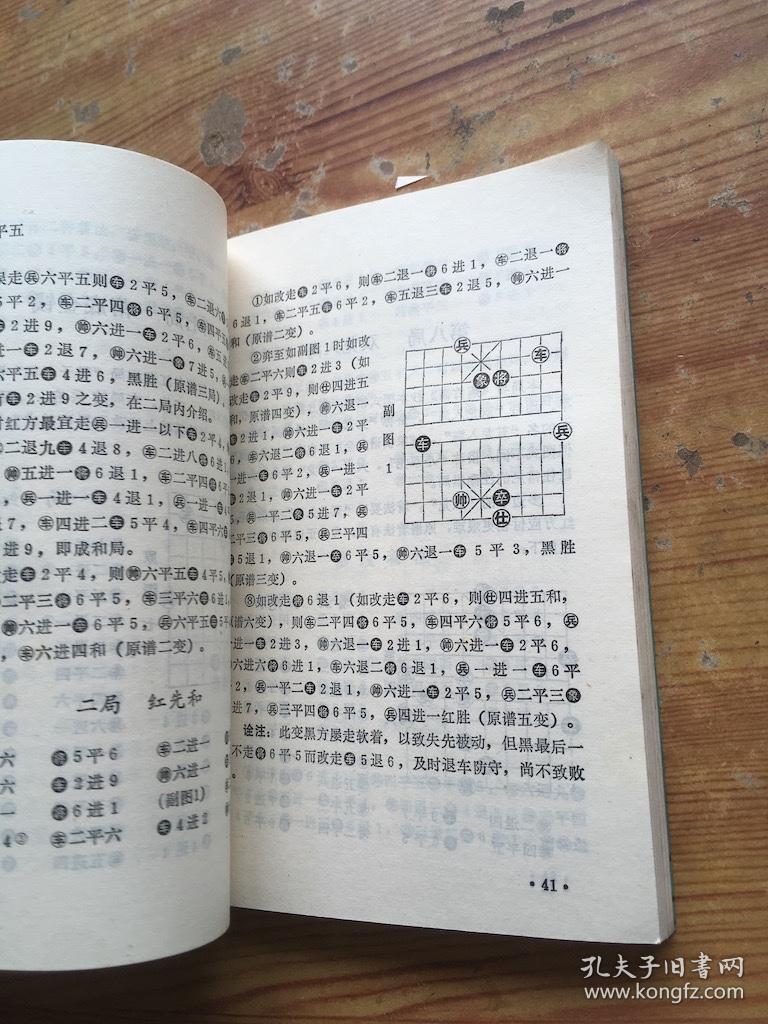 平五
走兵六平五则车2平5，车二退六
6平2，车二平四将6平5，车四平
2进9，帅六进一车2平6，车五
2退7，帅六进一象7进5，
六平五车4进6，黑胜（原谱三局）。
2进9之变，在二局内介绍。
红方最宜走兵一进一以下车2平4，
车二退九车4退8，车二进八将6进1，
帅五进一将6退1，车二平四将6平5，
兵一进一车4退1，兵一进一车4
进7，车四进二车5平4，车四平六
进9，即成和局。
走车2平4，则帅六平五车4平5，
二平三将6平5，车三平六将6进1，
帅六进一车6平5，兵六平五车5平
，车六进四和（原谱二变）。
二局 红先和
六 象5平6 车二进一
六 车2进9 帅六进一
一 将6进1 （副图1）
4② 车二平六 车4进2
①如改走车2平6，则车二退一将6进1，车二退一将
6退1，车二平五将6平2，车五退三车2退5，帅六进一
和（原谱二变）。
②弈至如副图1时如改
走车二平六则车2进3（如
改走车2平9，则仕四进五
和，原谱四变），帅六退一
车2进1，帅六进一车2平
6，车六退二将6退1，兵
一进一车6平2，兵一进一
车2退1，帅六进一车2平
5，兵一平二象5进7，兵
二平三象7退5，兵三平四
象5退1，帅六退一车6平5，帅六退一车5平3，黑胜
（原谱三变）。
③如改走将6退1（如改走车2平6，则仕四进五和，
（原谱六变），则车二平四将6平5，车四平六将5平6，兵
一进一车2进3，帅六退一车2进1，帅六进一车2平6，
车六进六将6进1，车六退二将6退1，兵一进一车6平
2，兵一平二车2退1，帅六进一车2平5，兵二平三象
5进7，兵三平四将6平5，兵四进一红胜（原谱五变）。
诠注：此变黑方屡走软着，以致失先被动，但黑最后一
着不走将6平5而改走车5退6，及时退车防守，尚不致败
。
副
图
1
兵
车
象
将
车
兵
帅
卒
仕
·41·
孔夫子旧书网
www.kongfz.com